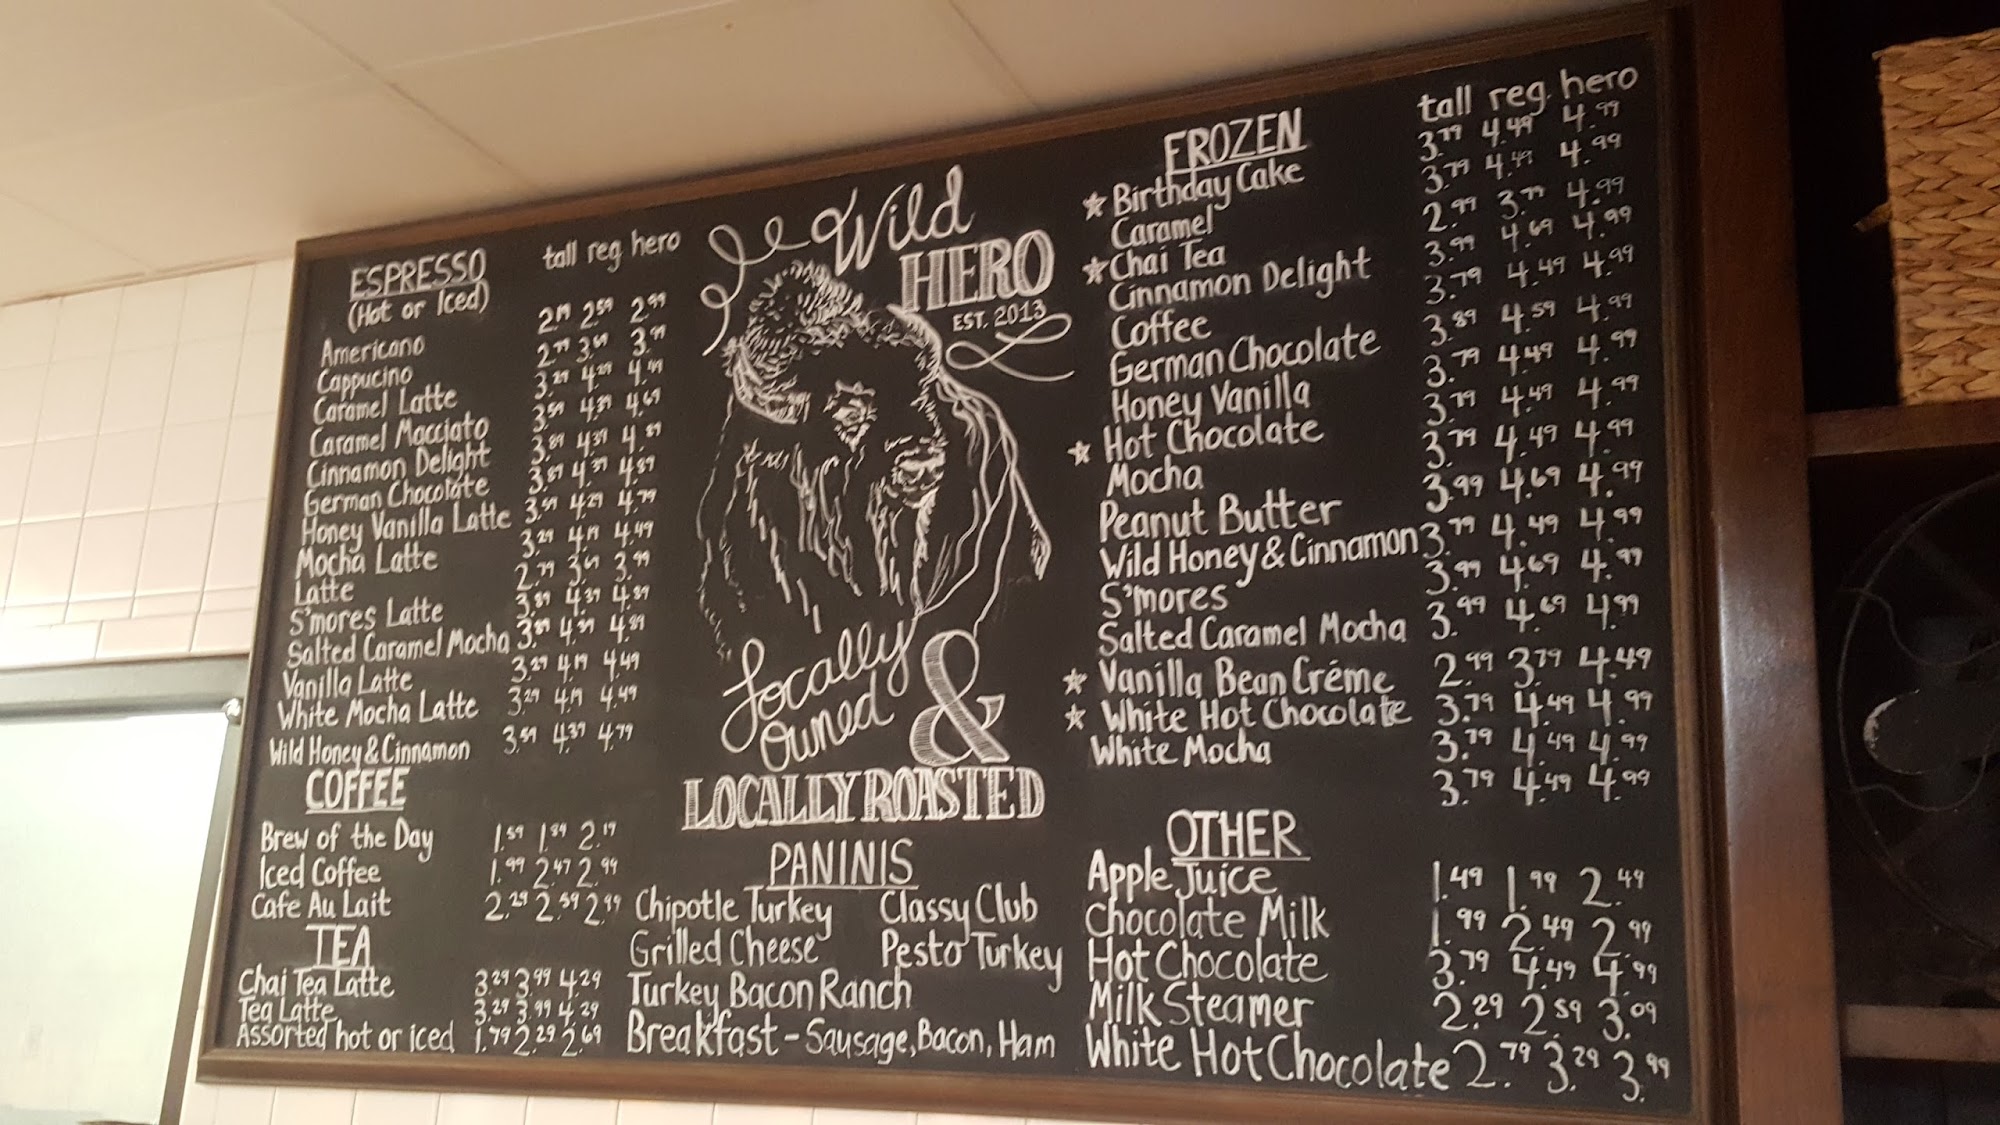 ESPRESSO
(Hot or Iced)
tall reg hero
Americano 2.19 2.59 2.99
Cappucino 2.79 3.69 3.99
Caramel Latte 3.29 4.29 4.49
Caramel Macciato 3.59 4.39 4.69
Cinnamon Delight 3.89 4.39 4.89
German Chocolate 3.89 4.39 4.89
Honey Vanilla Latte 3.59 4.29 4.79
Mocha Latte 3.29 4.19 4.49
Latte 2.79 3.69 3.99
S'mores Latte 3.89 4.39 4.89
Salted Caramel Mocha 3.89 4.39 4.89
Vanilla Latte 3.29 4.19 4.49
White Mocha Latte 3.29 4.19 4.49
Wild Honey & Cinnamon 3.59 4.39 4.79
COFFEE
Brew of the Day 1.59 1.89 2.19
Iced Coffee 1.99 2.47 2.99
Cafe Au Lait 2.29 2.59 2.99
TEA
Chai Tea Latte 3.29 3.99 4.29
Tea Latte 3.29 3.99 4.29
Assorted hot or iced 1.79 2.29 2.69
Wild
HERO
EST. 2013
Locally
Owned
&
LOCALLY ROASTED
PANINIS
Chipotle Turkey Classy Club
Grilled Cheese Pesto Turkey
Turkey Bacon Ranch
Breakfast - Sausage, Bacon, Ham
FROZEN
☆ Birthday Cake
Caramel
☆ Chai Tea
Cinnamon Delight
Coffee
German Chocolate
Honey Vanilla
☆ Hot Chocolate
Mocha
Peanut Butter
Wild Honey & Cinnamon
S'mores
Salted Caramel Mocha
☆ Vanilla Bean Créme
☆ White Hot Chocolate
White Mocha
tall reg. hero
3.79 4.49 4.99
3.79 4.49 4.99
2.99 3.79 4.99
3.99 4.69 4.99
3.79 4.49 4.99
3.89 4.59 4.99
3.79 4.49 4.99
3.79 4.49 4.99
3.79 4.49 4.99
3.99 4.69 4.99
3.79 4.49 4.99
3.99 4.69 4.99
3.99 4.69 4.99
2.99 3.79 4.49
3.79 4.49 4.99
3.79 4.49 4.99
3.79 4.49 4.99
OTHER
Apple Juice 1.49 1.99 2.49
Chocolate Milk 1.99 2.49 2.99
Hot Chocolate 3.79 4.49 4.99
Milk Steamer 2.29 2.59 3.09
White Hot Chocolate 2.79 3.29 3.99